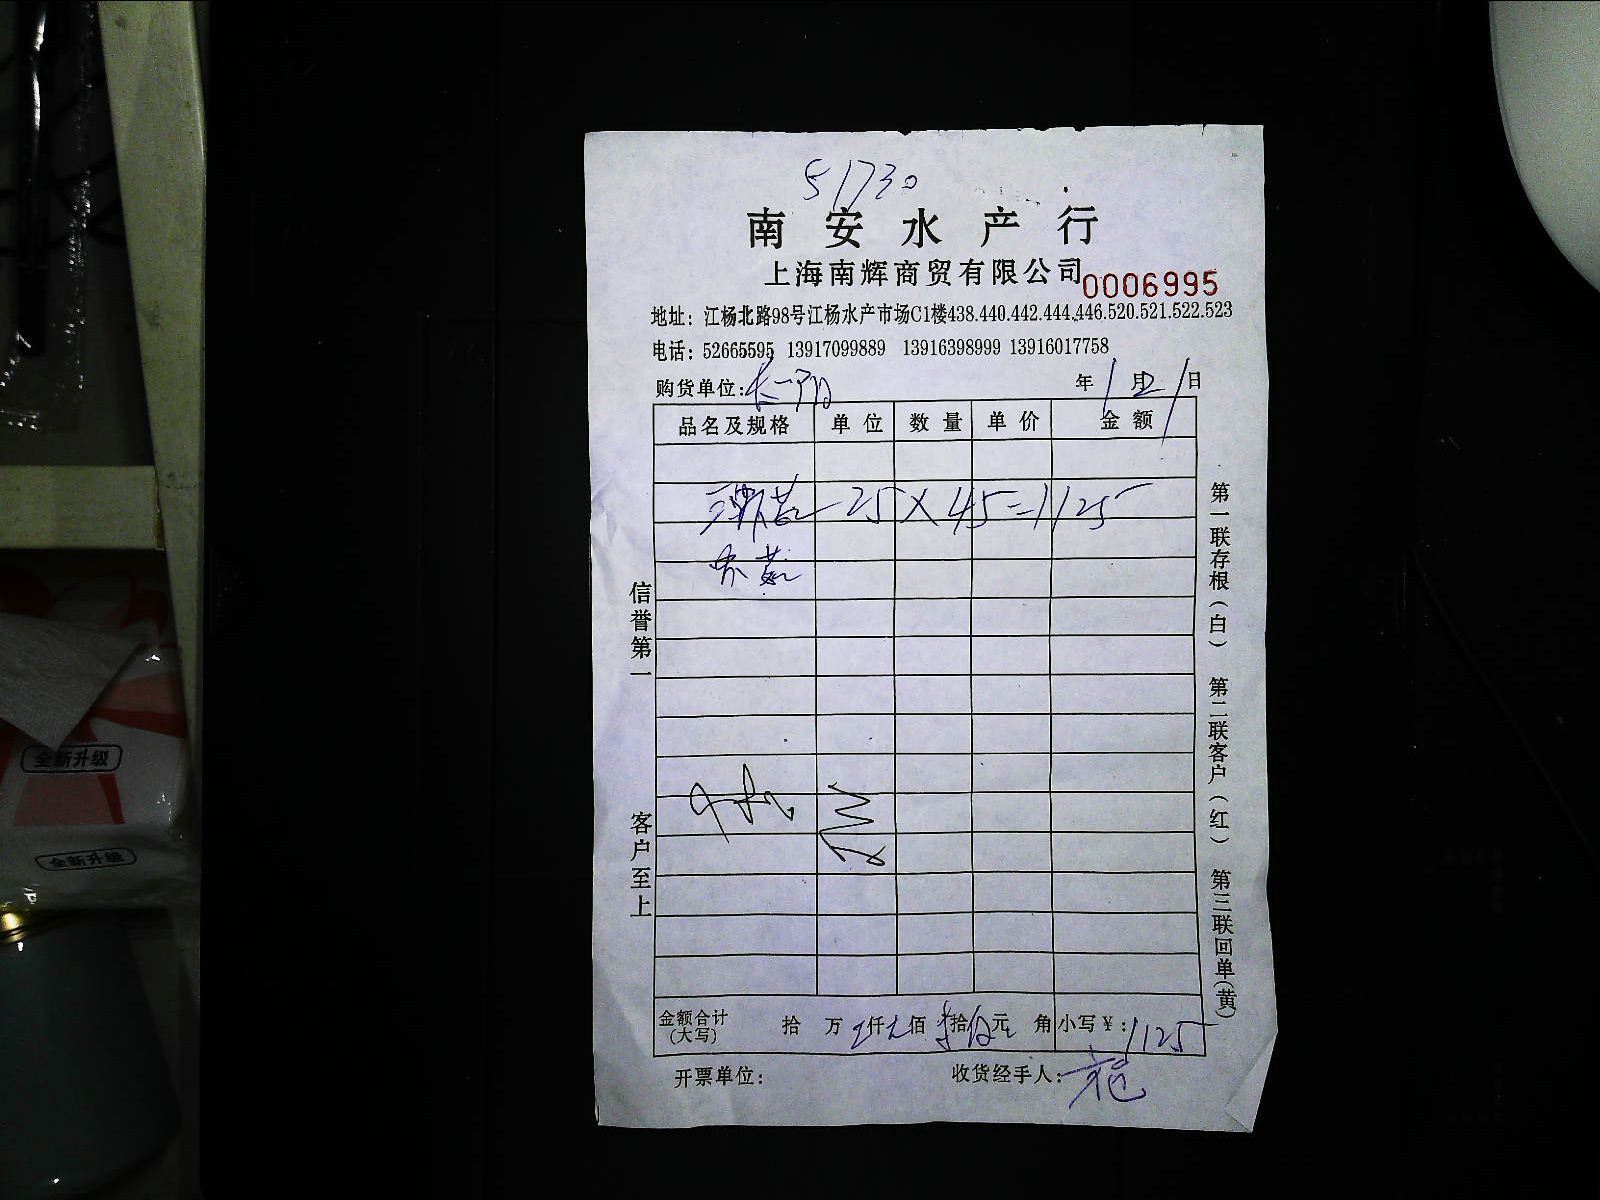 51730
南安水产行
上海南辉商贸有限公司 0006995
地址：江杨北路98号江杨水产市场C1楼438.440.442.444.446.520.521.522.523
电话：52665595 13917099889 13916398999 13916017758
购货单位： 年 1 月 21 日
品名及规格 单位 数量 单价 金额
25×45=1125
信誉第一
客户至上
第一联存根（白） 第二联客户（红） 第三联回单（黄）
金额合计（大写） 拾 万 仟 佰 拾 元 角 小写¥：1125
开票单位： 收货经手人：
全新升级
全新升级